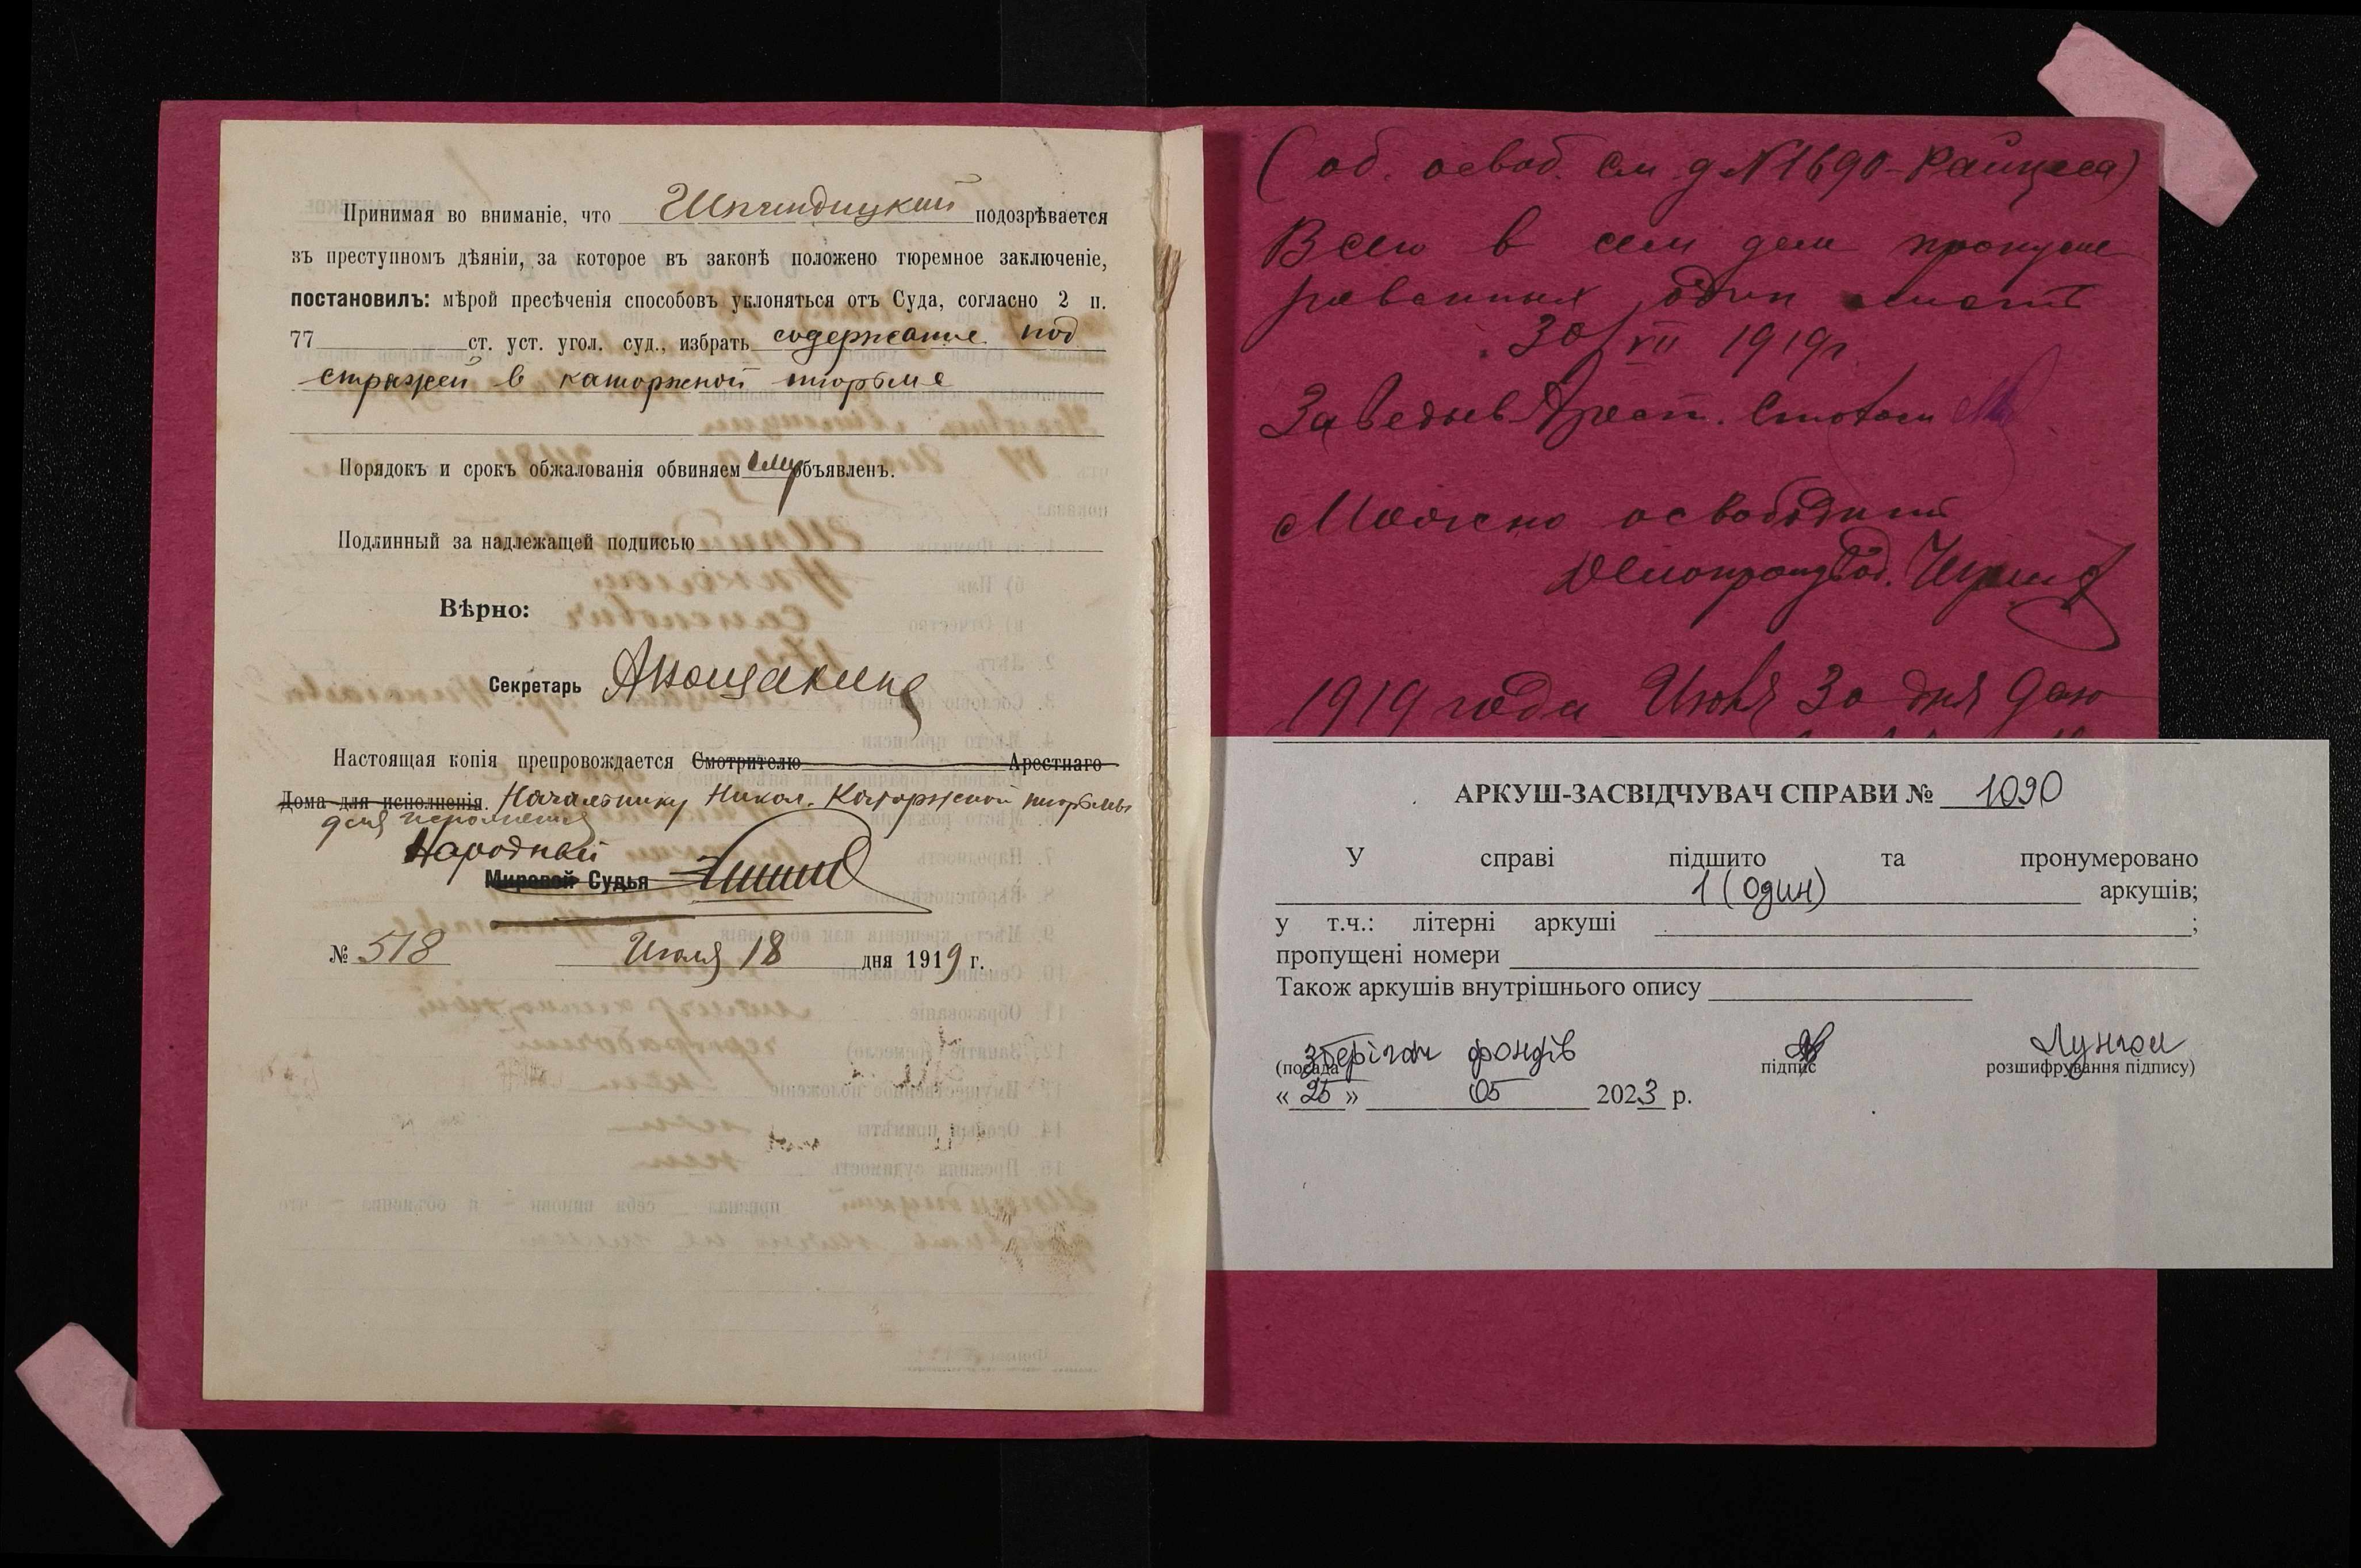 Принимая во вниманіе, что Шпиндицкий подозрѣвается
въ преступномъ дѣяніи, за которое въ законѣ положено тюремное заключеніе,
постановилъ: мѣрой пресѣченія способовъ уклоняться отъ Суда, согласно 2 п.
77 ст. уст. угол. суд., избрать содержание под
стражей в каторжной тюрьме
Порядокъ и срокъ обжалованія обвиняемому объявленъ.
Подлинный за надлежащей подписью
Вѣрно:
Секретарь
Настоящая копія препровождается Смотрителю Арестнаго
Дома для исполненія. Начальнику Никол. Каторжной тюрьмы
для исполнения
Народный
Мировой Судья
№ 518 Июля 18 дня 1919 г.
(об. освоб. см д N 1690 - Райцеса)
Всего в сем деле пронуме
рованных один лист
30/VII 1919 г.
Заведыв Арест. Столом
Можно освободить
1919 года Июля 30 дня даю
АРКУШ-ЗАСВІДЧУВАЧ СПРАВИ № 1090
У справі підшито та пронумеровано
1 (один) аркушів;
у т.ч.: літерні аркуші ;
пропущені номери
Також аркушів внутрішнього опису
зберігач фондів Лунгол
(посада підпис розшифрування підпису)
« 25 » 05 2023 р.